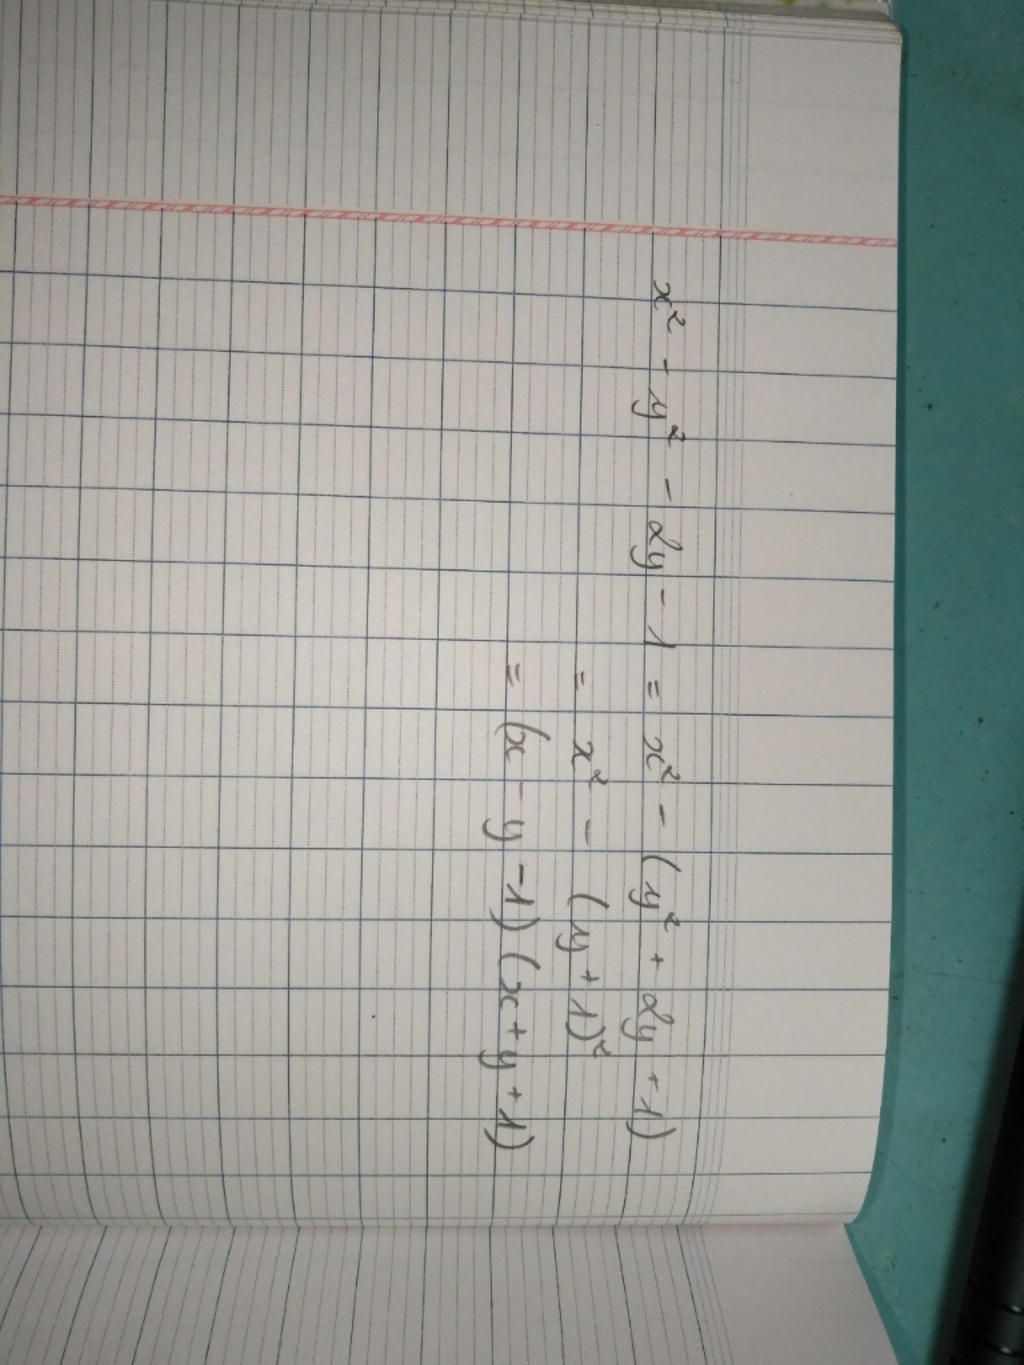 x² - y² - 2y - 1 = x² - (y² + 2y + 1)
= x² - (y + 1)²
= (x - y - 1) (x + y + 1)